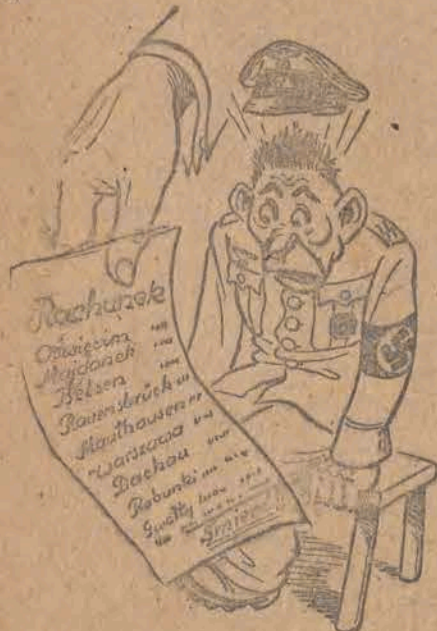 Rachunek
Oświęcim
Majdanek
Belsen
Ravensbrück
Mauthausen
Warszawa
Dachau
Rabunki
Gwałty
Śmierć